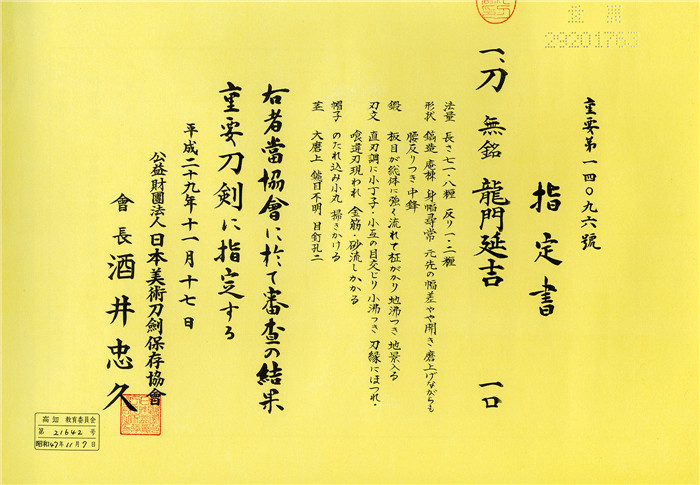 重要第一四〇九六號
指定書
一、刀 無銘 龍門延吉 一口
法量 長さ七一・八糎 反り一・二糎
形状 鎬造 庵棟 身幅尋常 元先の幅差やや開き 磨上げながらも
腰反りつき 中鋒
鍛 板目が総体に強く流れて柾がかり 地沸つき 地景入る
刃文 直刃調に小丁子・小互の目交じり 小沸つき 刃縁にほつれ・
喰違刃現われ 金筋・砂流しかかる
帽子 のたれ込み小丸 掃きかける
茎 大磨上 鑢目不明 目釘孔二
右者當協會に於て審査の結果
重要刀剣に指定する
平成二十九年十一月十七日
公益財團法人日本美術刀劍保存協會
會長 酒井忠久
重要
29201763
高知 教育委員会
第 21642 号
昭和47年11月7日